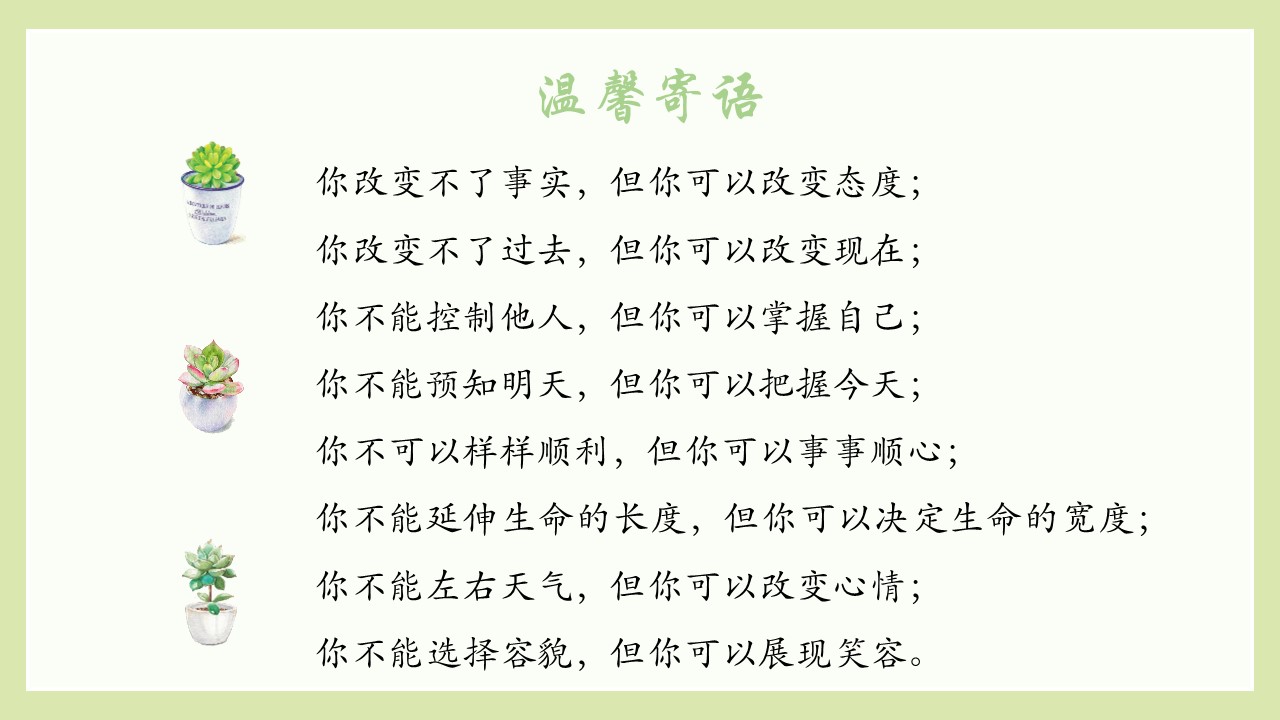 温馨寄语
你改变不了事实，但你可以改变态度；
你改变不了过去，但你可以改变现在；
你不能控制他人，但你可以掌握自己；
你不能预知明天，但你可以把握今天；
你不可以样样顺利，但你可以事事顺心；
你不能延伸生命的长度，但你可以决定生命的宽度；
你不能左右天气，但你可以改变心情；
你不能选择容貌，但你可以展现笑容。